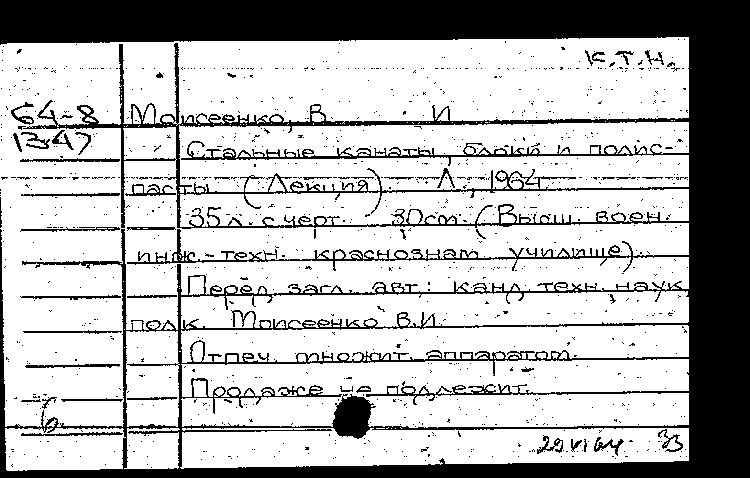 К.Т.Н.
64-8 Моисеенко, В И
1347
Стальные канаты, блоки и полис-
пасты. (Лекция) Л., 1964
35л. с черт. 30см. (Высш. воен.
инж.-техн. краснознам училище).
Перед загл. авт.: канд. техн. наук,
полк. Моисеенко В.И.
Отпеч. множит. аппаратом.
Продаже не подлежит.
б
29 VI 64